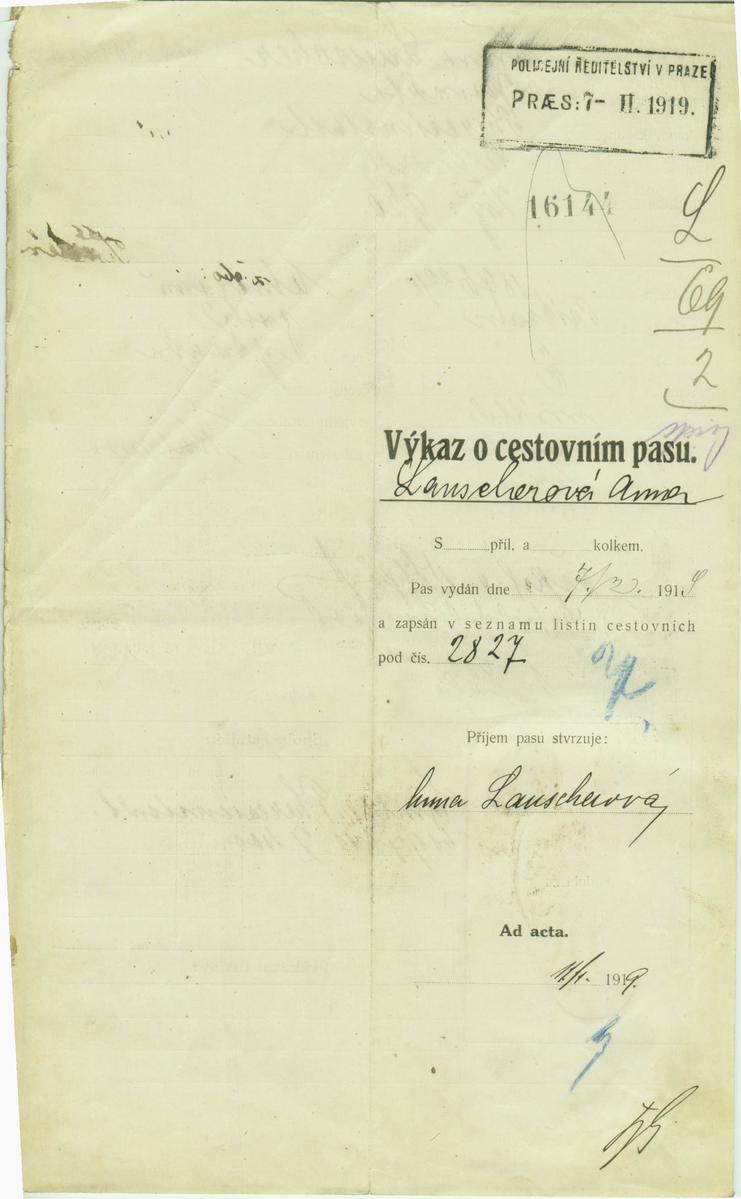 POLICEJNÍ ŘEDITELSTVÍ V PRAZE
PRÆS: 7- II. 1919.
16144
L
69
2
Výkaz o cestovním pasu.
Lauscherová Anna
S........příl. a ............ kolkem.
Pas vydán dne 7./2. 1919
a zapsán v seznamu listin cestovních
pod čís. 2827
Příjem pasu stvrzuje:
Anna Lauscherová
Ad acta.
1919.